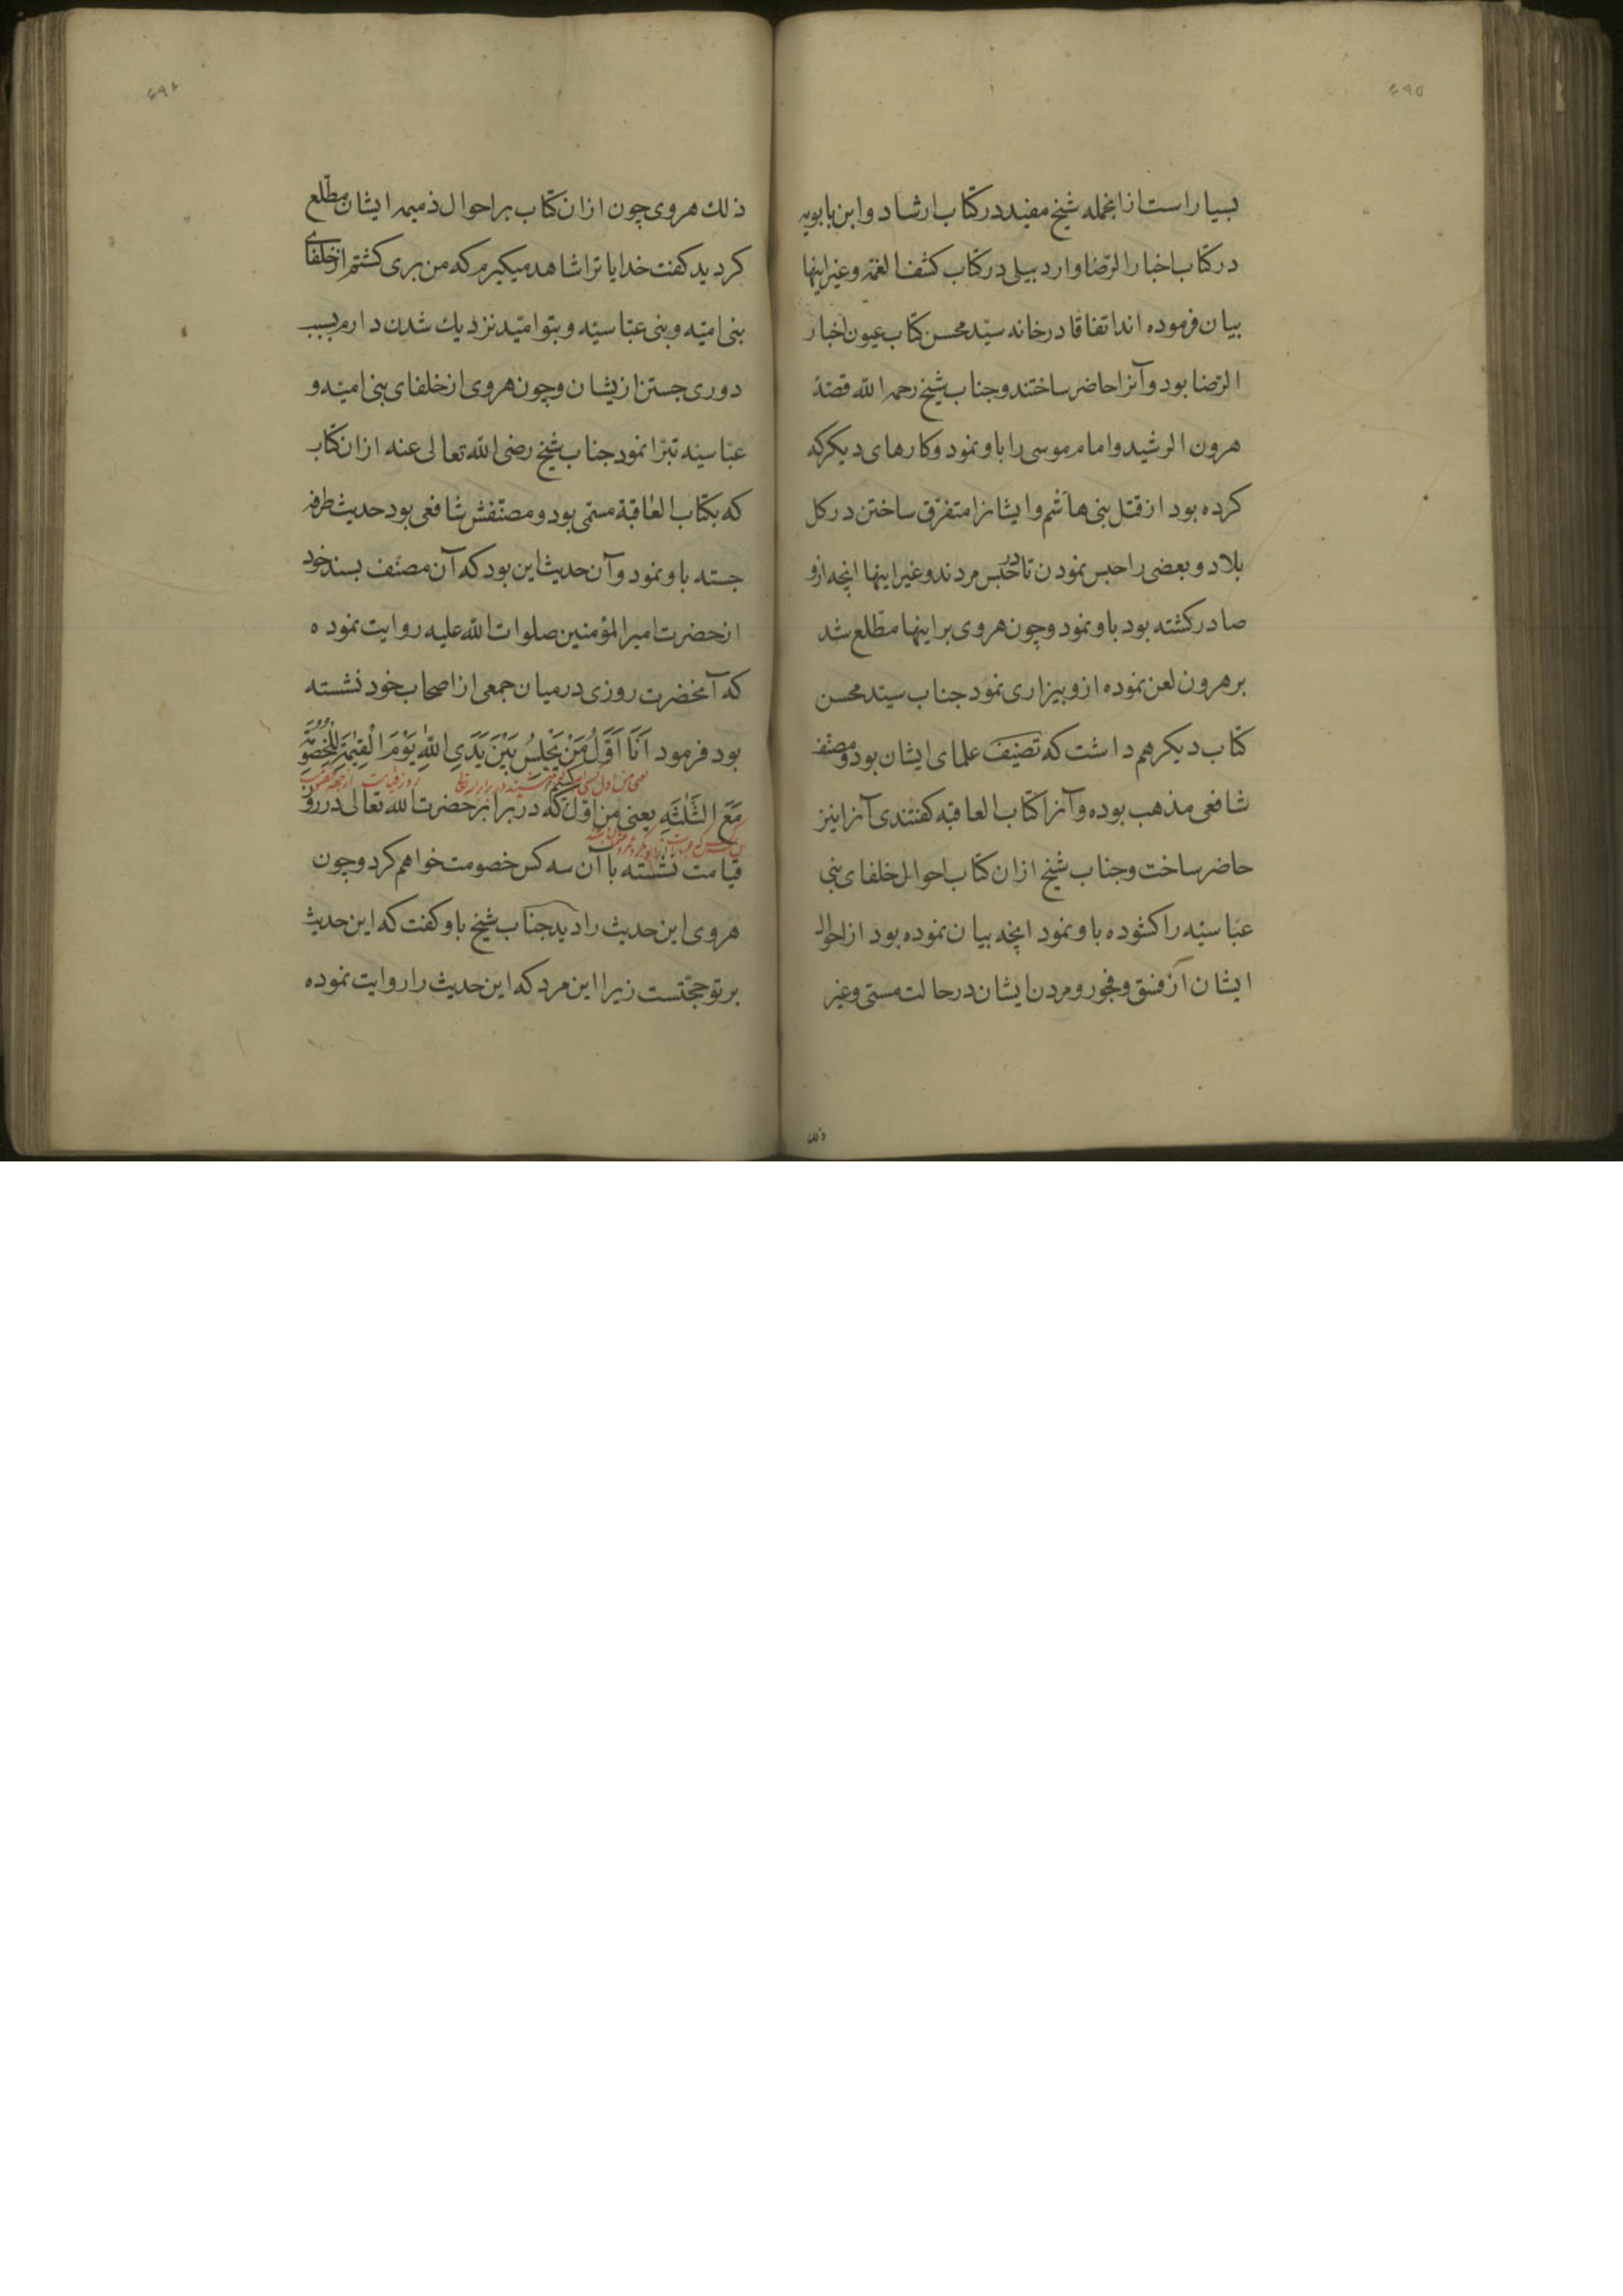 ۴۹۵
بسیار است از انجمله شیخ مفید در کتاب ارشاد و ابن بابویه
در کتاب اخبار الرضا و اردبیلی در کتاب کشف الغمه و غیر اینها
بیان فرموده اند اتفاقا در خانه سیّد محسن کتاب عیون اخبار
الرّضا بود و آنرا حاضر ساختند و جناب شیخ رحمه الله قصّهٔ
هرون الرشید و امام موسی را باو نمود و کارهای دیکر که
کرده بود از قتل بنی هاشم و ایشانرا متفرّق ساختن در کل
بلاد و بعضی را حبس نمودن تا در حبس مردند و غیر اینها انچه ازو
صادر کشته بود باو نمود و چون هروی بر اینها مطلع شد
بر هرون لعن نموده ازو بیزاری نمود جناب سیّد محسن
کتاب دیکر هم داشت که تصنیف علمای ایشان بود و مصنّف
شافعی مذهب بوده و آنرا کتاب العاقبه کفتندی آنرا نیز
حاضر ساخت و جناب شیخ از ان کتاب احوال خلفای بنی
عبّاسیّه را کشوده باو نمود انچه بیان نموده بود از احوال
ایشان از فسق و فجور و مردن ایشان در حالت مستی و غیر
ذلك
ذلك هروی چون از ان کتاب بر احوال ذمیمه ایشان مطّلع
کردید کفت خدایا ترا شاهد میکیرم که من بری کشتم از خلفای
بنی امیّه و بنی عبّاسیّه و بتو امّید نزدیك شدن دارم بسبب
دوری جستن ازیشان و چون هروی از خلفای بنی امیّه و
عبّاسیّه تبرّا نمود جناب شیخ رضی الله تعالی عنه از ان کتاب
که بکتاب العاقبة مسمّی بود و مصنّفش شافعی بود حدیث طرفه
جسته باو نمود و آن حدیث این بود که آن مصنّف بسند خود
از حضرت امیر المؤمنین صلوات الله علیه روایت نموده
که آنحضرت روزی در میان جمعی از اصحاب خود نشسته
بود فرمود اَنَا اَوَّلُ مَنْ یَجْلِسُ بَیْنَ یَدَیِ اللّٰهِ یَوْمَ الْقِیٰمَةِ لِلْخُصُومَةِ
یعنی من اول کسی روز قیامت از جهة
مَعَ الثَّلٰثَةِ یعنی من اوّل که در برابر حضرت الله تعالی در روز
قیامت نشسته با آن سه کس خصومت خواهم کرد و چون
هروی این حدیث را دید جناب شیخ باو کفت که این حدیث
بر تو حجّتست زیرا این مرد که این حدیث را روایت نموده